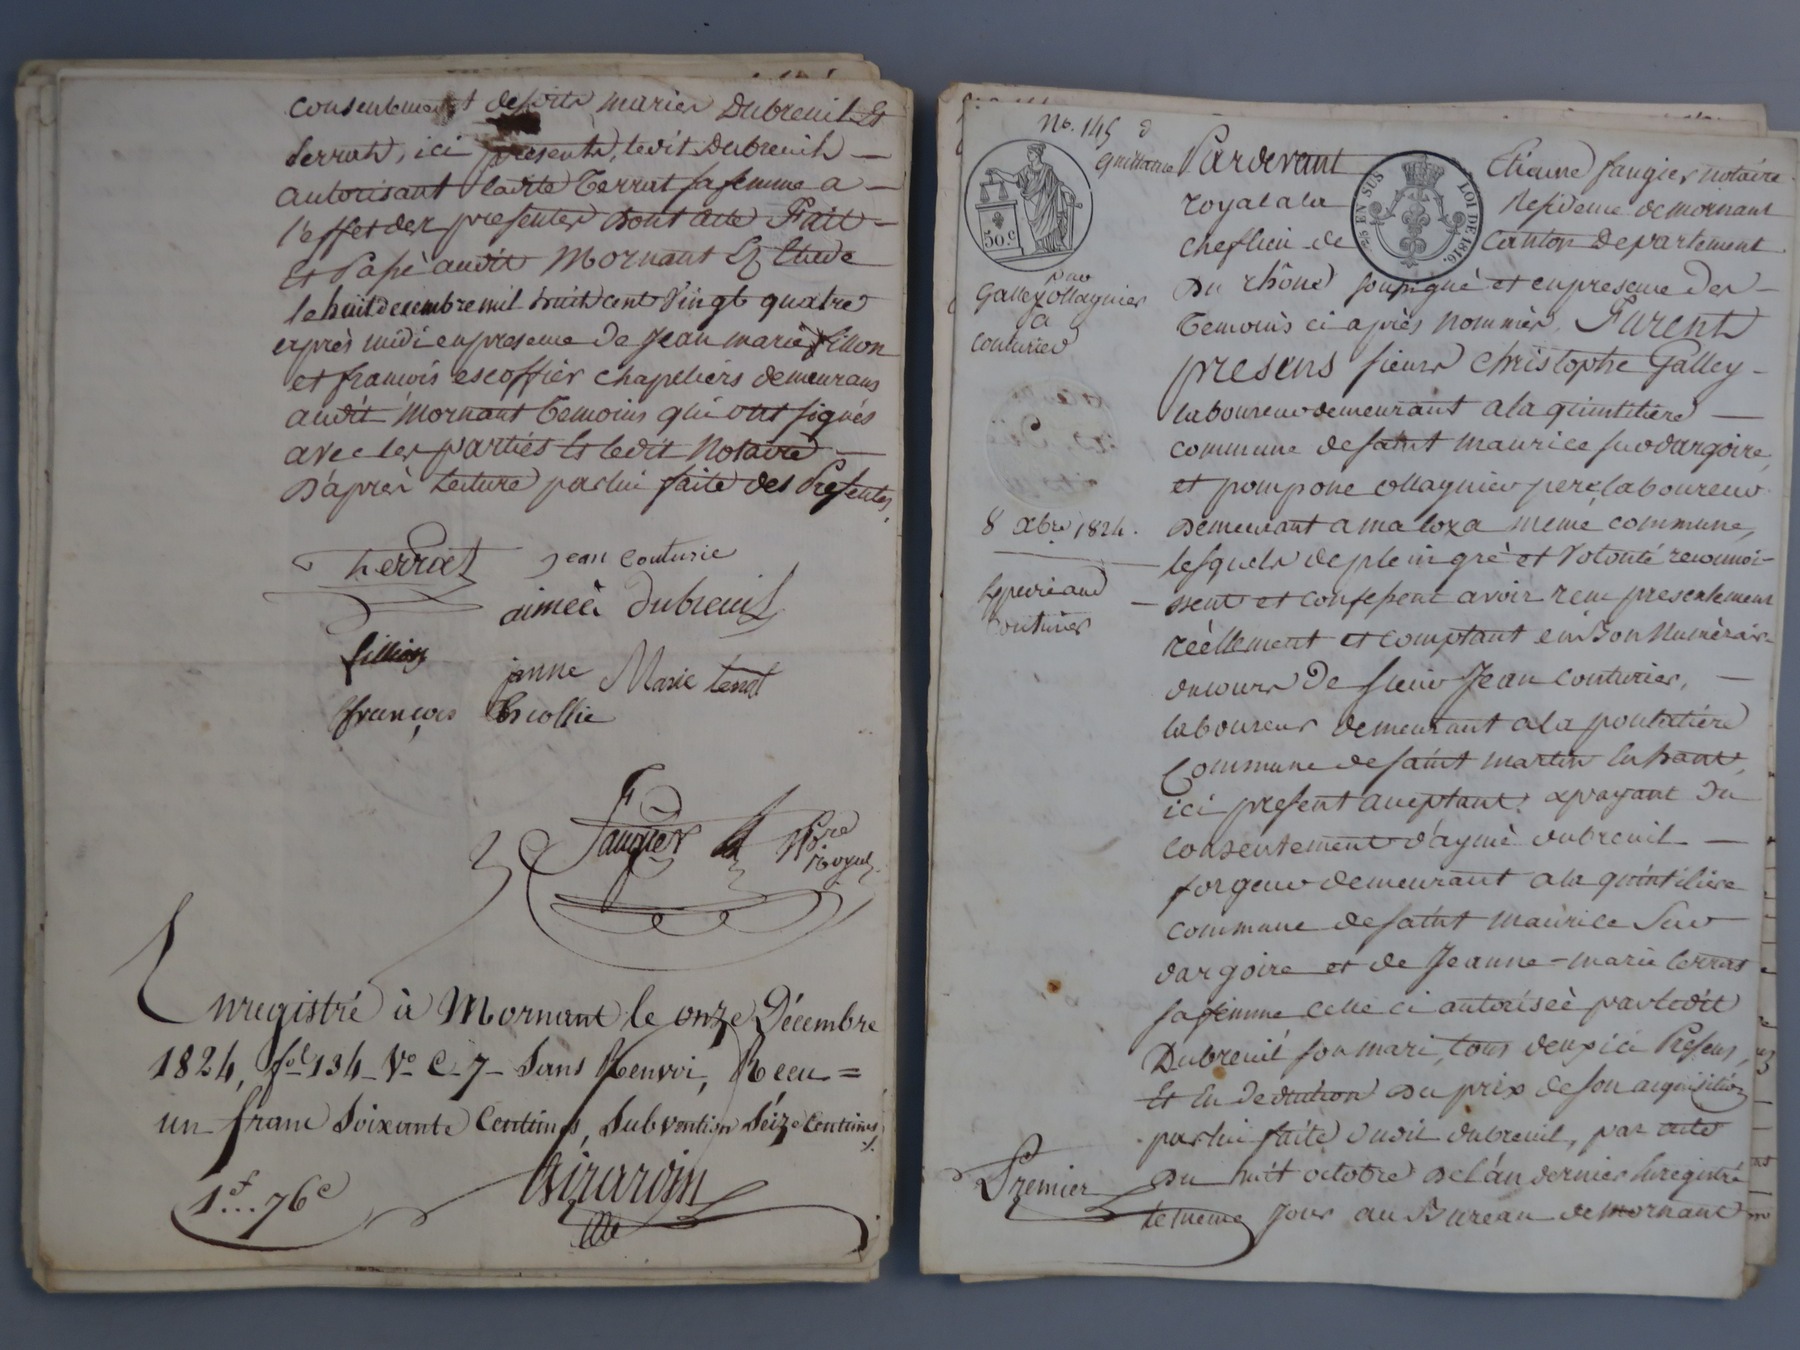 consentement desdits mariés Dubreuil Et
Terrat, ici présents, ledit Dubreuil —
autorisant ladite Terrat sa femme a —
l'effet des presentes dont acte Fait —
Et Passé audit Mornant Ez Etude
le huit decembre mil huit cent vingt quatre
après midi en presence de Jean marie fillion
et francois escoffier chapeliers demeurans
audit Mornant temoins qui ont signés
avec les parties Et ledit Notaire —
D'après Lecture par lui faite des Presentes,
terrat
jean couturie
aimeè dubreuil
fillion
janne Marie terrat
françois Escoffie
Faugier
Nre
Royal
Enregistré à Mornant le onze Décembre
1824, fol 134 Vo C. 7 Sans Renvoi, Reçu =
un franc Soixante Centimes, Subvention Seize Centimes
1f... 76c
Girardin
No. 145
quittance
50 c
par
Galley ollagnier
a
couturier
8 xbre 1824.
Expedié aud
couturier
25 EN SUS LOI DE 1816.
Pardevant Etienne faugier notaire
royal a la Residence de mornant
chef lieu de Canton Departement
Du rhône soussigné et en presence des —
temoins ci après nommés, Furent
presens sieurs christophe Galley —
laboureur demeurant a la quintiliere —
commune de saint maurice sur dargoire,
et pompone ollagnier pere laboureur
demeurant a maloza meme commune,
lesquels de plein gré et volonté reconnoi-
— ssent et confessent avoir reçu presentement
réellement et comptant en Bon Numérair-
du cours De sieur Jean couturier, —
laboureur demeurant a la pontatiére
Commune de saint martin En haut,
ici present acceptant, & payant Du
consentement d'aymé dubreuil —
forgeur demeurant a la quintiliere
commune de saint maurice Sur
dargoire et de Jeanne-marie terrat
sa femme celle ci autoriseè par ledit
Dubreuil son mari, tous deux ici Presens,
Et En deduction Du prix de son acquisition
par lui faite dudit dubreuil, par acte
Du huit octobre De l'an dernier Enregistré
le meme jour au Bureau de mornant
Premier